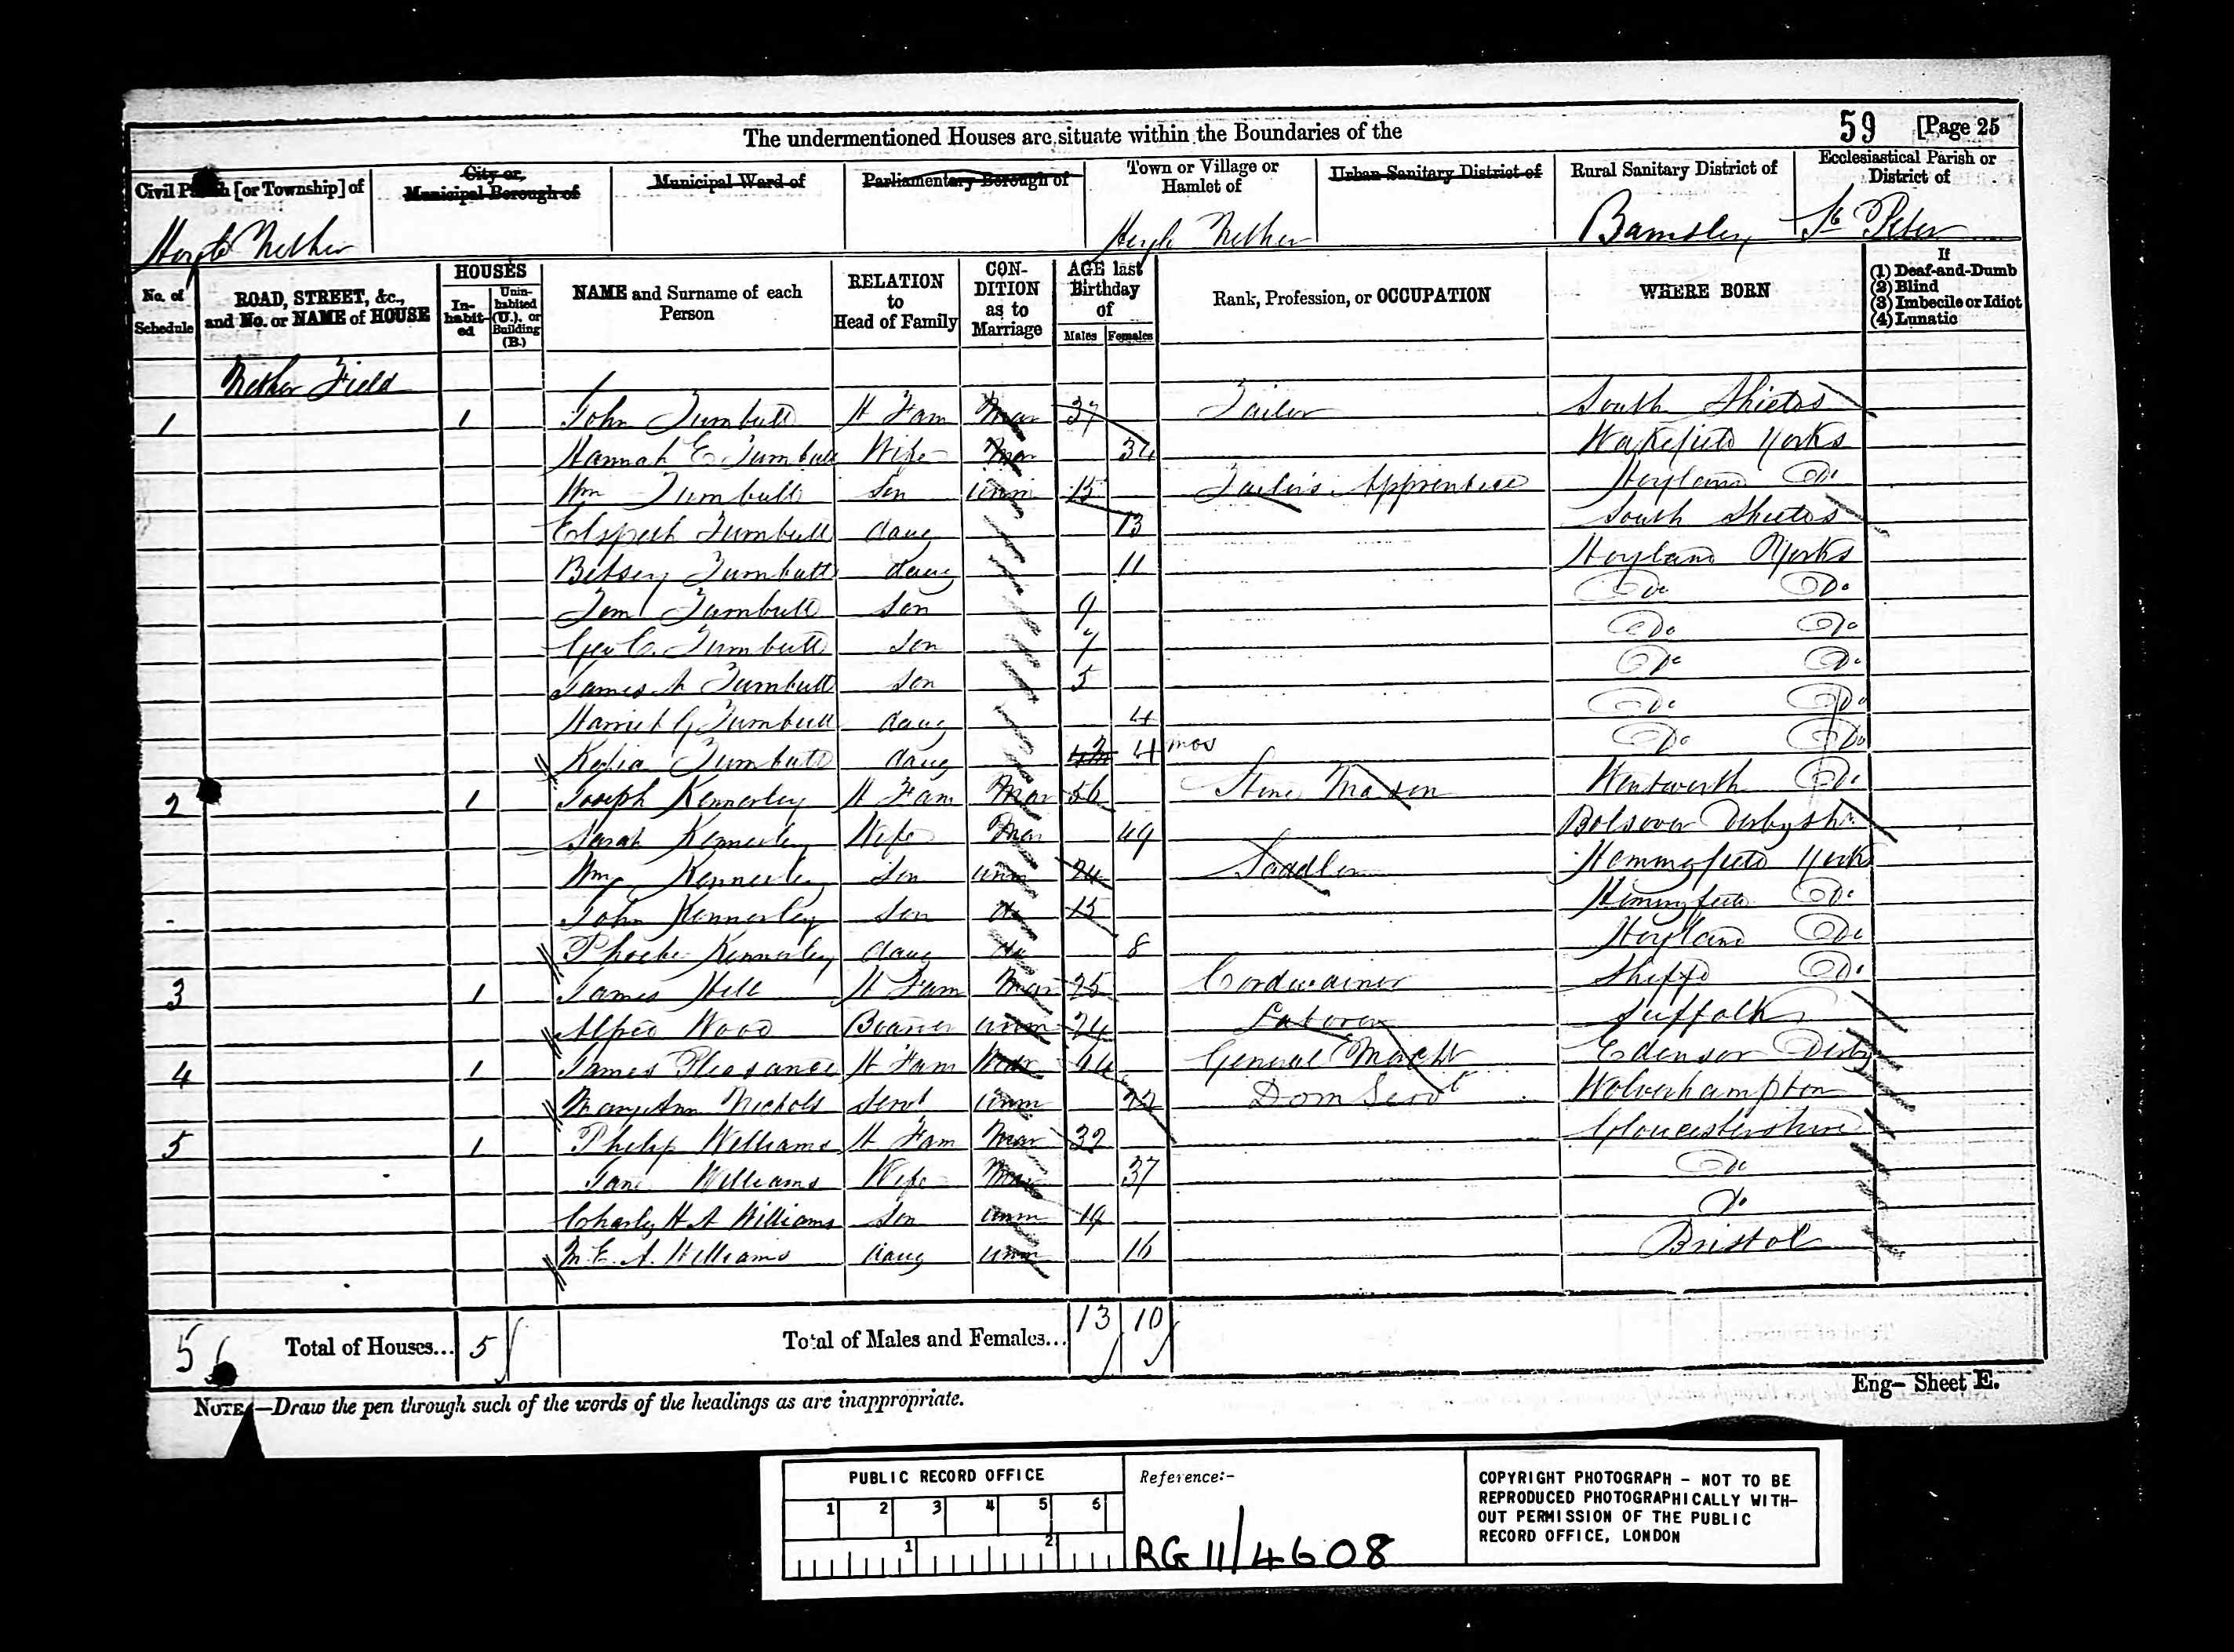 The undermentioned Houses are situate within the Boundaries of the
59 [Page 25
Civil Parish [or Township] of
City or Municipal Borough of
Municipal Ward of
Parliamentary Borough of
Town or Village or Hamlet of
Urban Sanitary District of
Rural Sanitary District of
Ecclesiastical Parish or District of
Nether
Nether
Barnsley
St Peter
No. of Schedule
ROAD, STREET, &c., and No. or NAME of HOUSE
HOUSES
In-habit-ed
Unin-habited (U.), or Building (B.)
NAME and Surname of each Person
RELATION to Head of Family
CON-DITION as to Marriage
AGE last Birthday of
Males Females
Rank, Profession, or OCCUPATION
WHERE BORN
If
(1) Deaf-and-Dumb
(2) Blind
(3) Imbecile or Idiot
(4) Lunatic
Nether Field
1 1 John Turnbull H Fam Mar 37 Tailor South Shields
Hannah E Turnbull Wife Mar Wakefield Yorks
Wm Turnbull Son Unm 15 Tailor's Apprentice Hoyland Do
Elspeth Turnbull daug 13 South Shields
Betsey Turnbull daug 11 Hoyland Yorks
Tom Turnbull Son 9 Do Do
Geo C. Turnbull Son 7 Do Do
James A Turnbull Son 5 Do Do
Harriet G Turnbull daug 4 Do Do
Turnbull daug 4 mos Do Do
2 1 Joseph Kennerley H Fam Mar 56 Stone Mason Wentworth Do
Sarah Kennerley Wife Mar 49 Bolsover Derbyshr
Wm Kennerley Son Unm 24 Saddler Hemmingfield York
John Kennerley Son do 15 Hemmingfield Do
Phoebe Kennerley daug do 8 Hoyland Do
3 1 James Hill H Fam Mar 25 Cordwainer Sheffd Do
Alfred Wood Boarder Unm 24 Laborer Suffolk
4 1 James Pleasance H Fam Mar General Edensor Derby
Mary Ann Nichols Servt Unm Dom Servt Wolverhampton
5 1 Philip Williams H Fam Mar 32 Gloucestershire
Jane Williams Wife Mar 37 Do
Charley H A Williams Son Unm 19 Do
M. E. A. Williams daug Unm 16 Bristol
5 Total of Houses... 5 Total of Males and Females... 13 10
NOTE.—Draw the pen through such of the words of the headings as are inappropriate.
Eng— Sheet E.
PUBLIC RECORD OFFICE
1 2 3 4 5 6
1 2
Reference:-
RG 11/4608
COPYRIGHT PHOTOGRAPH - NOT TO BE
REPRODUCED PHOTOGRAPHICALLY WITH-
OUT PERMISSION OF THE PUBLIC
RECORD OFFICE, LONDON